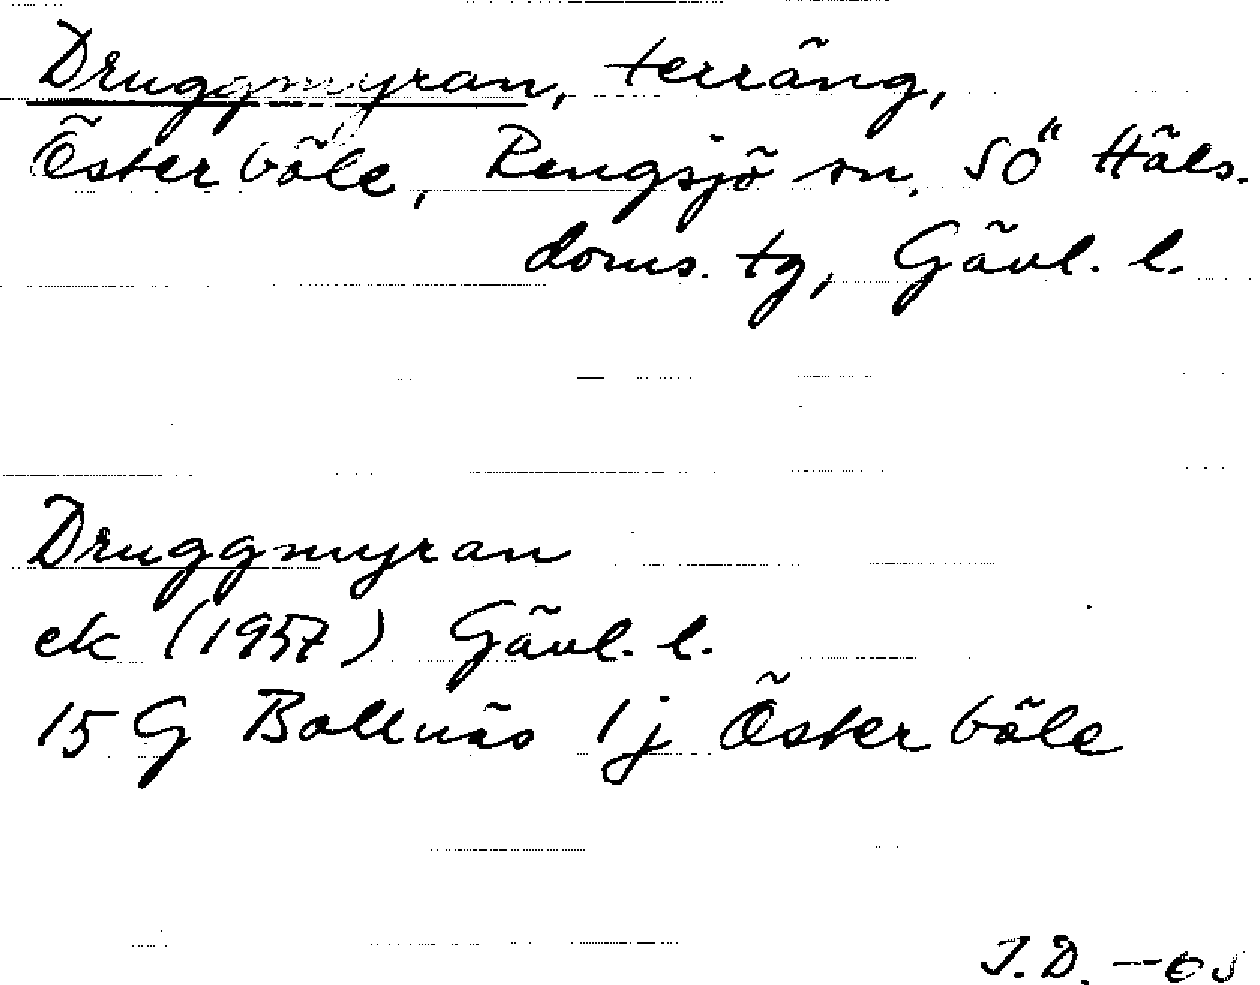 Druggmyran, terräng,
Österböle, Rengsjö sn. SÖ Häls.
doms. tg, Gävl. l.
Druggmyran
ek (1957) Gävl. l.
15 G Bollnäs 1 j Österböle
J.D. -65